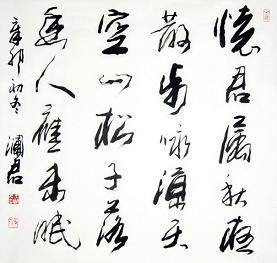 懷君屬秋夜
散步詠涼天
空山松子落
幽人應未眠
辛卯初冬 君